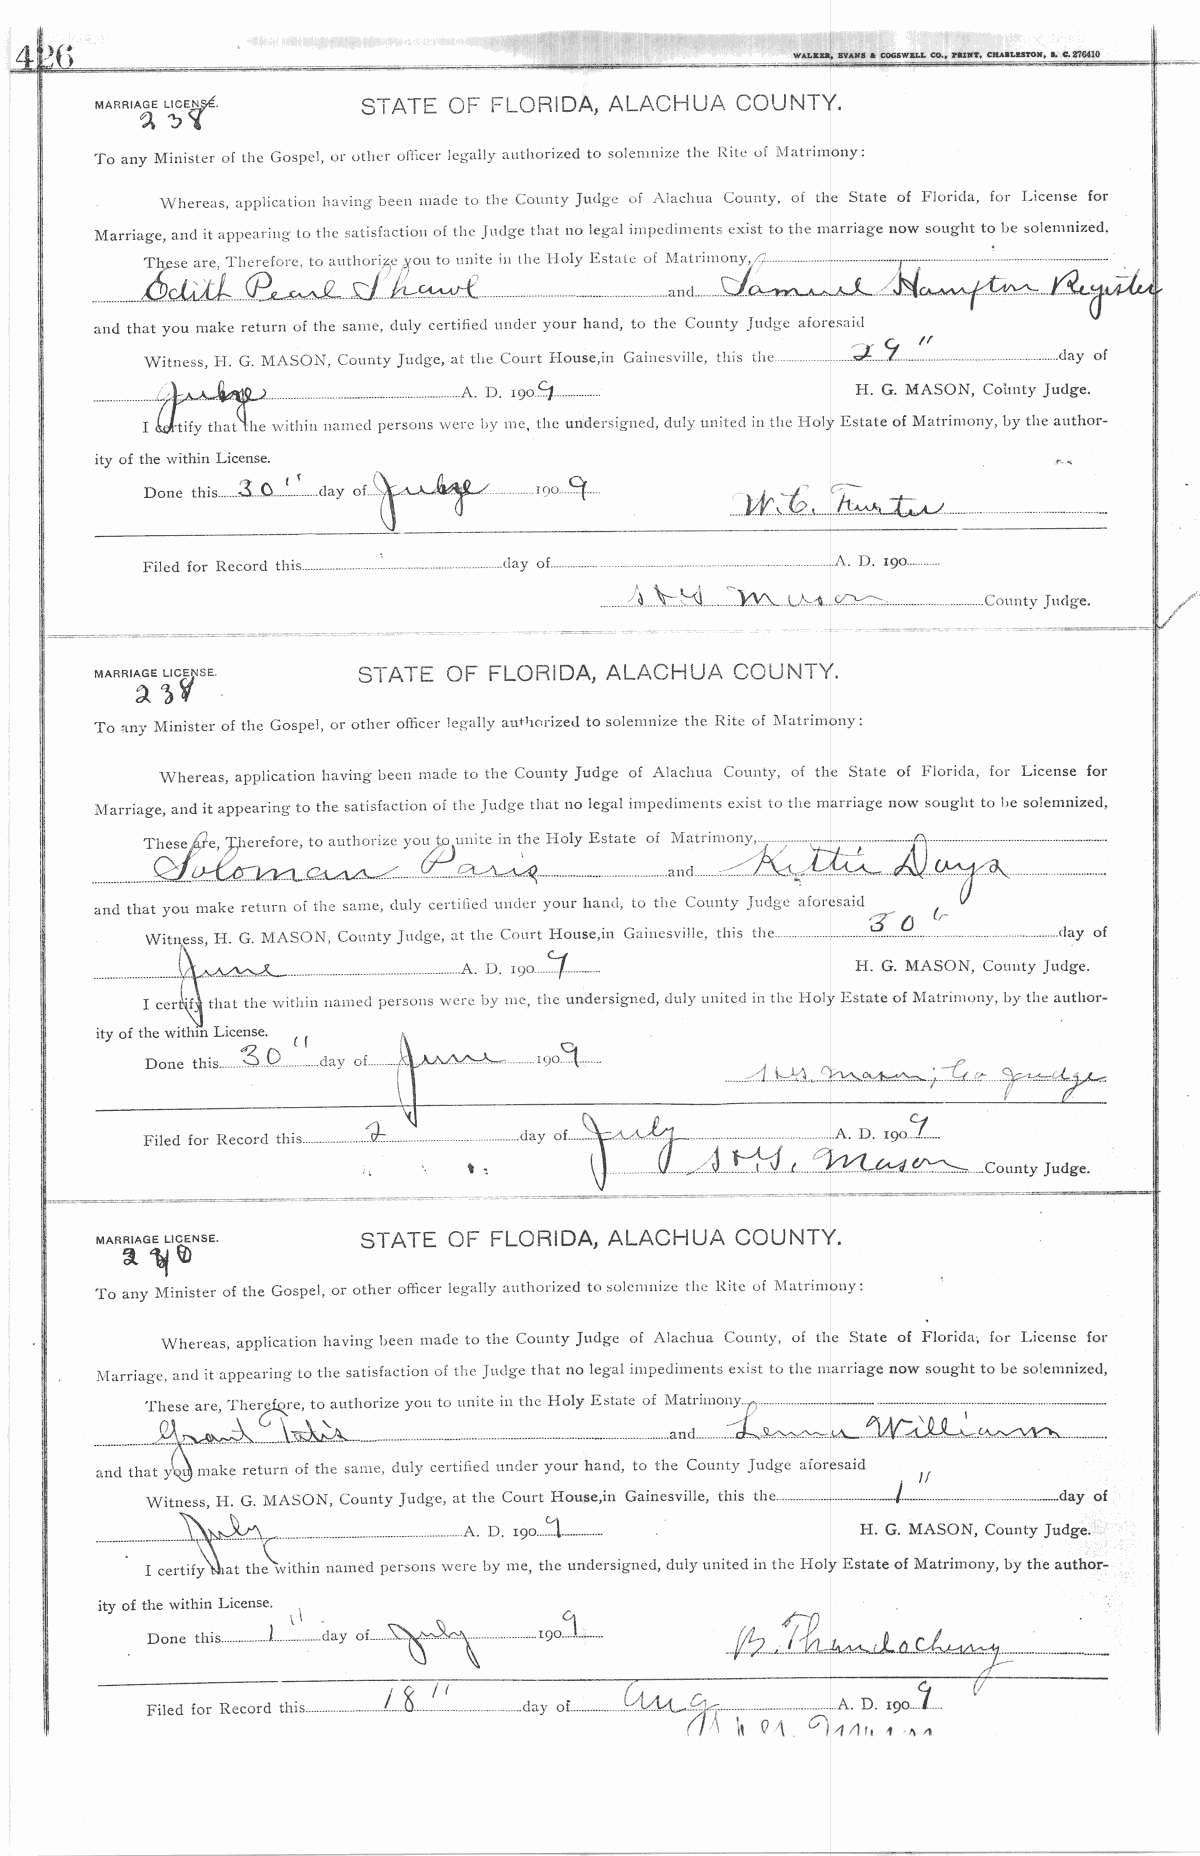 426
WALKER, EVANS & COGSWELL CO., PRINT, CHARLESTON, S. C. 276410
MARRIAGE LICENSE. STATE OF FLORIDA, ALACHUA COUNTY.
238
To any Minister of the Gospel, or other officer legally authorized to solemnize the Rite of Matrimony:
Whereas, application having been made to the County Judge of Alachua County, of the State of Florida, for License for
Marriage, and it appearing to the satisfaction of the Judge that no legal impediments exist to the marriage now sought to be solemnized,
These are, Therefore, to authorize you to unite in the Holy Estate of Matrimony,
Edith Pearl and Samuel Hampton Register
and that you make return of the same, duly certified under your hand, to the County Judge aforesaid
Witness, H. G. MASON, County Judge, at the Court House, in Gainesville, this the 29" day of
A. D. 1909 H. G. MASON, County Judge.
I certify that the within named persons were by me, the undersigned, duly united in the Holy Estate of Matrimony, by the author-
ity of the within License.
Done this 30" day of 1909
W. C.
Filed for Record this day of A. D. 190
H G Mason County Judge.
MARRIAGE LICENSE. STATE OF FLORIDA, ALACHUA COUNTY.
To any Minister of the Gospel, or other officer legally authorized to solemnize the Rite of Matrimony:
Whereas, application having been made to the County Judge of Alachua County, of the State of Florida, for License for
Marriage, and it appearing to the satisfaction of the Judge that no legal impediments exist to the marriage now sought to be solemnized,
These are, Therefore, to authorize you to unite in the Holy Estate of Matrimony,
Soloman Paris and Kittie Days
and that you make return of the same, duly certified under your hand, to the County Judge aforesaid
Witness, H. G. MASON, County Judge, at the Court House, in Gainesville, this the 30" day of
June A. D. 1909 H. G. MASON, County Judge.
I certify that the within named persons were by me, the undersigned, duly united in the Holy Estate of Matrimony, by the author-
ity of the within License.
Done this 30" day of June 1909
H.G. Mason, Co Judge
Filed for Record this 2 day of July A. D. 1909
H.G. Mason County Judge.
MARRIAGE LICENSE. STATE OF FLORIDA, ALACHUA COUNTY.
240
To any Minister of the Gospel, or other officer legally authorized to solemnize the Rite of Matrimony:
Whereas, application having been made to the County Judge of Alachua County, of the State of Florida, for License for
Marriage, and it appearing to the satisfaction of the Judge that no legal impediments exist to the marriage now sought to be solemnized,
These are, Therefore, to authorize you to unite in the Holy Estate of Matrimony
Grant and Williams
and that you make return of the same, duly certified under your hand, to the County Judge aforesaid
Witness, H. G. MASON, County Judge, at the Court House, in Gainesville, this the 1" day of
July A. D. 1909 H. G. MASON, County Judge.
I certify that the within named persons were by me, the undersigned, duly united in the Holy Estate of Matrimony, by the author-
ity of the within License.
Done this 1" day of July 1909
B.
Filed for Record this 18" day of Aug A. D. 1909